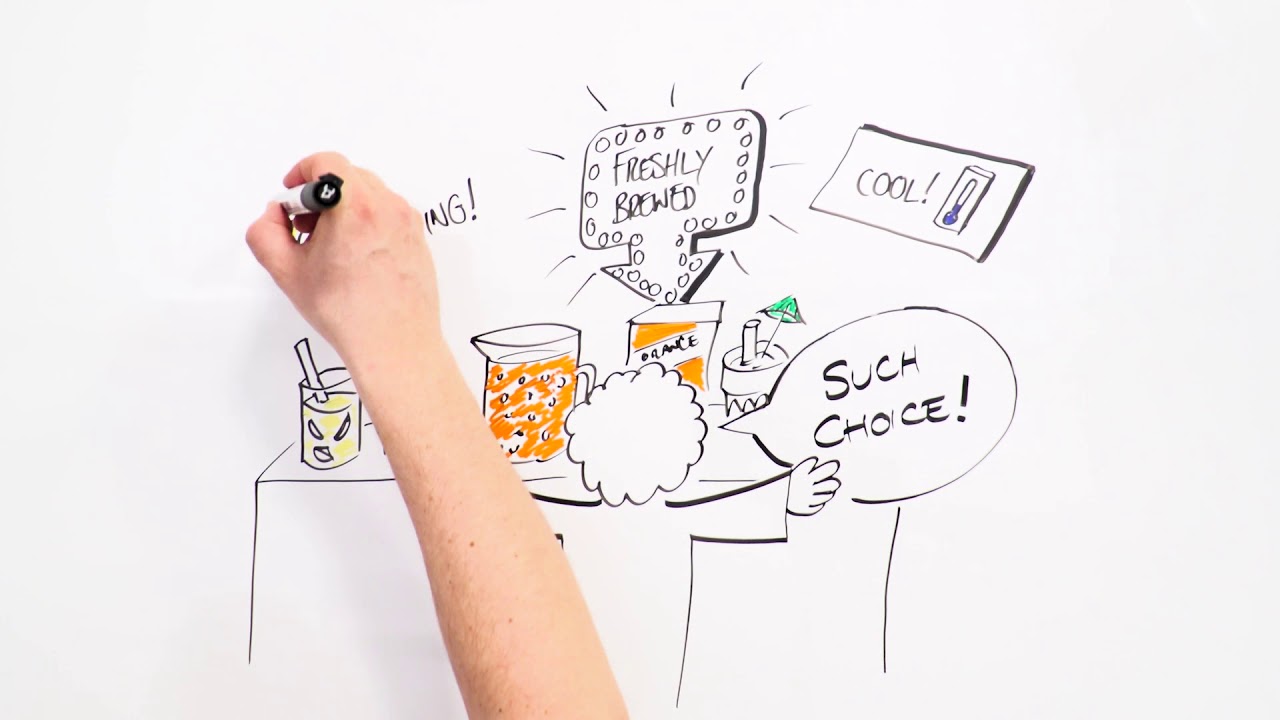 ING!
FRESHLY
BREWED
COOL!
ORANGE
SUCH
CHOICE!